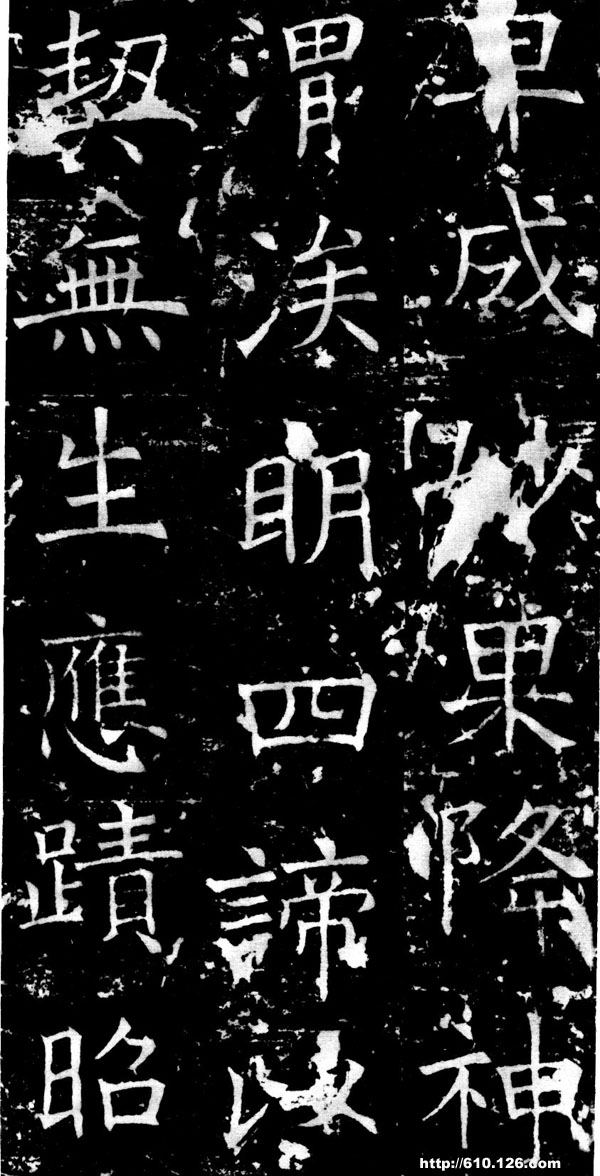 早成妙果降神
渭涘明四諦以
契無生應蹟昭
http://610.126.com